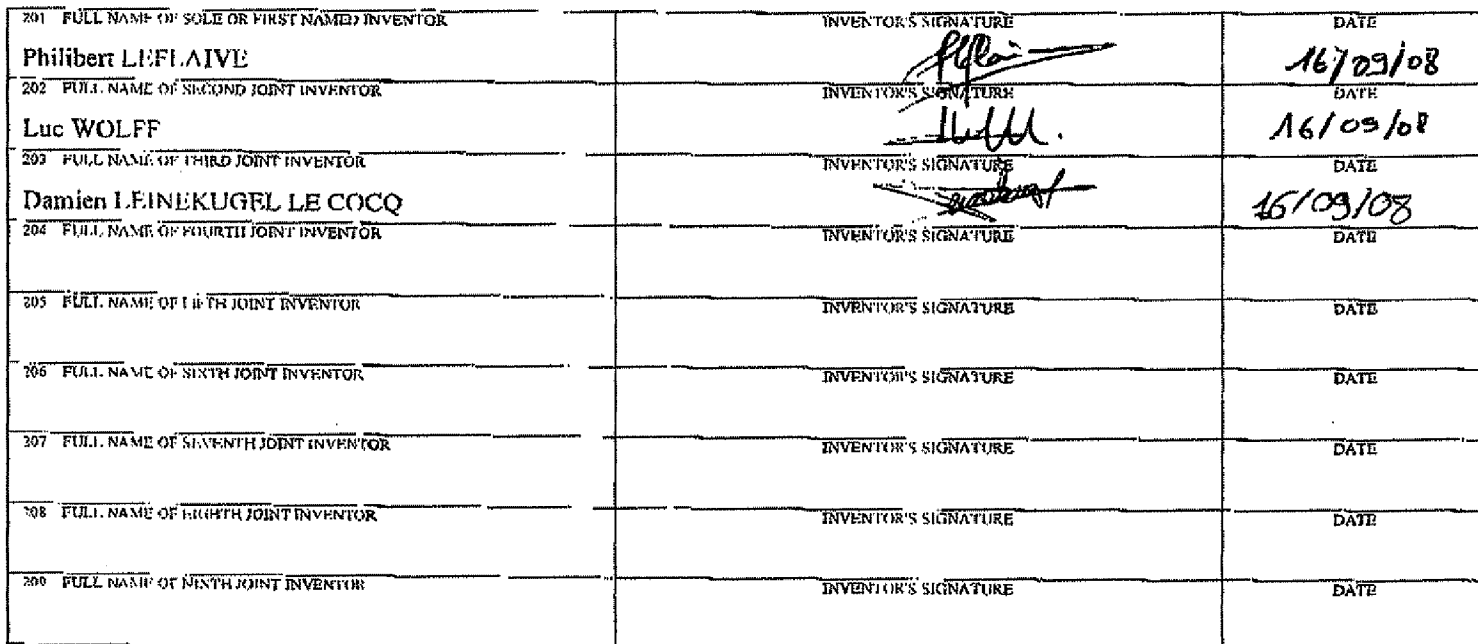 201 FULL NAME OF SOLE OR FIRST NAMED INVENTOR INVENTOR'S SIGNATURE DATE
Philibert LEFLAIVE 16/09/08
202 FULL NAME OF SECOND JOINT INVENTOR INVENTOR'S SIGNATURE DATE
Luc WOLFF 16/09/08
203 FULL NAME OF THIRD JOINT INVENTOR INVENTOR'S SIGNATURE DATE
Damien LEINEKUGEL LE COCQ 16/09/08
204 FULL NAME OF FOURTH JOINT INVENTOR INVENTOR'S SIGNATURE DATE
205 FULL NAME OF FIFTH JOINT INVENTOR INVENTOR'S SIGNATURE DATE
206 FULL NAME OF SIXTH JOINT INVENTOR INVENTOR'S SIGNATURE DATE
207 FULL NAME OF SEVENTH JOINT INVENTOR INVENTOR'S SIGNATURE DATE
208 FULL NAME OF EIGHTH JOINT INVENTOR INVENTOR'S SIGNATURE DATE
209 FULL NAME OF NINTH JOINT INVENTOR INVENTOR'S SIGNATURE DATE